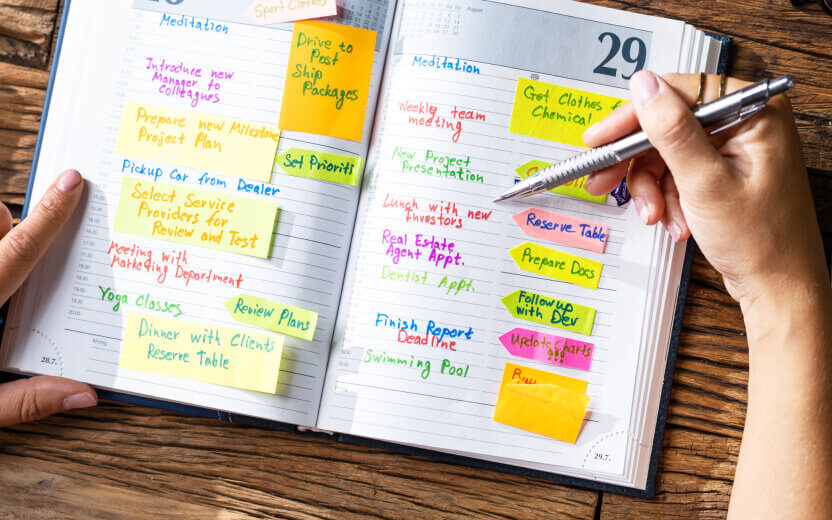 Sport Clothes
Meditation
Drive to
Post
Ship
Packages
Introduce new
Manager to
Colleagues
Prepare new Milestone
Project Plan
Set Prioriti
Pickup Car from Dealer
Select Service
Providers for
Review and Test
Meeting with
Marketing Department
Yoga Classes
Review Plans
Dinner with Clients
Reserve Table
28.7.
August
29
Meditation
Get Clothes f
Chemical
Weekly team
meeting
New Project
Presentation
Lunch with new
Investors
Reserve Table
Real Estate
Agent Appt.
Prepare Docs
Dentist Appt.
Followup
with Dev
Finish Report
Deadline
Update Charts
!!!
Swimming Pool
29.7.